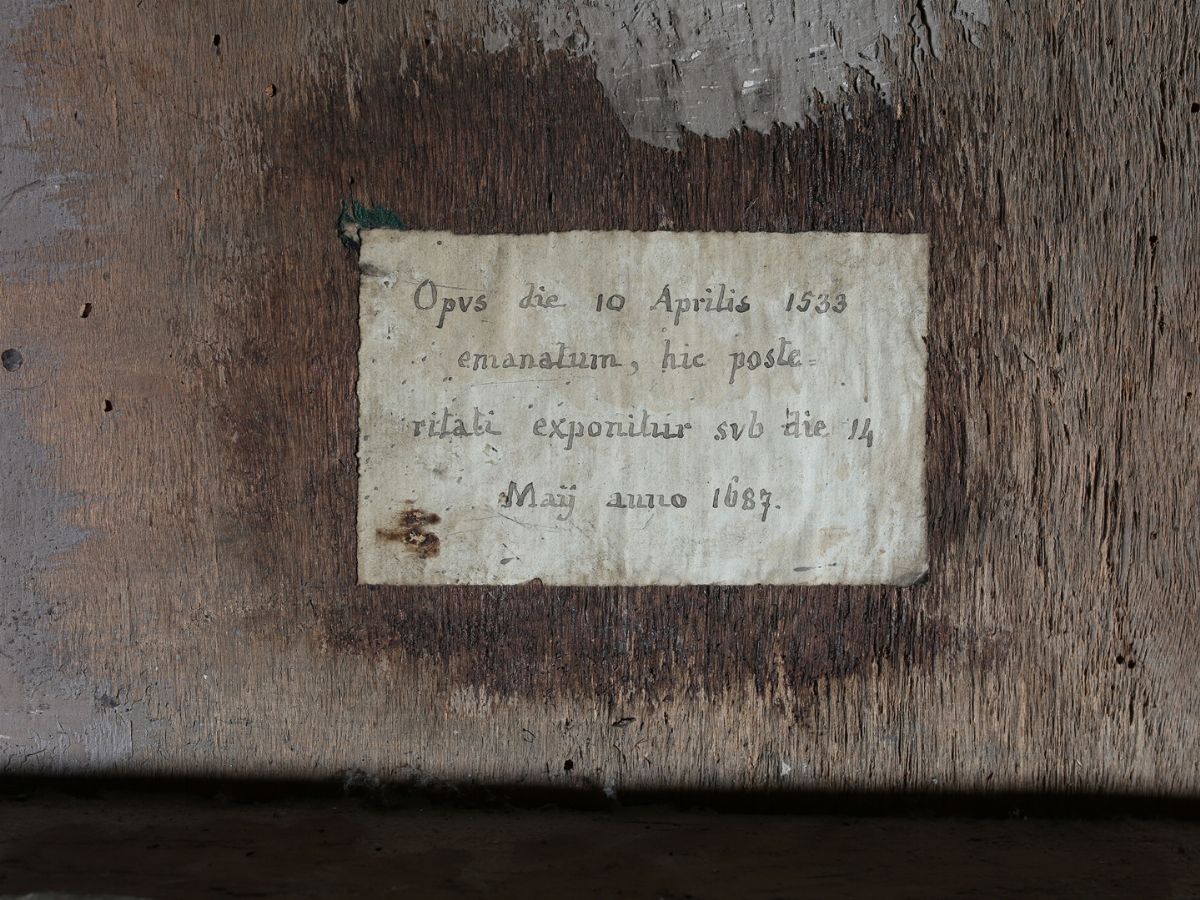 Opvs die 10 Aprilis 1533
emanatum, hic poste=
ritati exponitur svb die 14
Maij anno 1687.